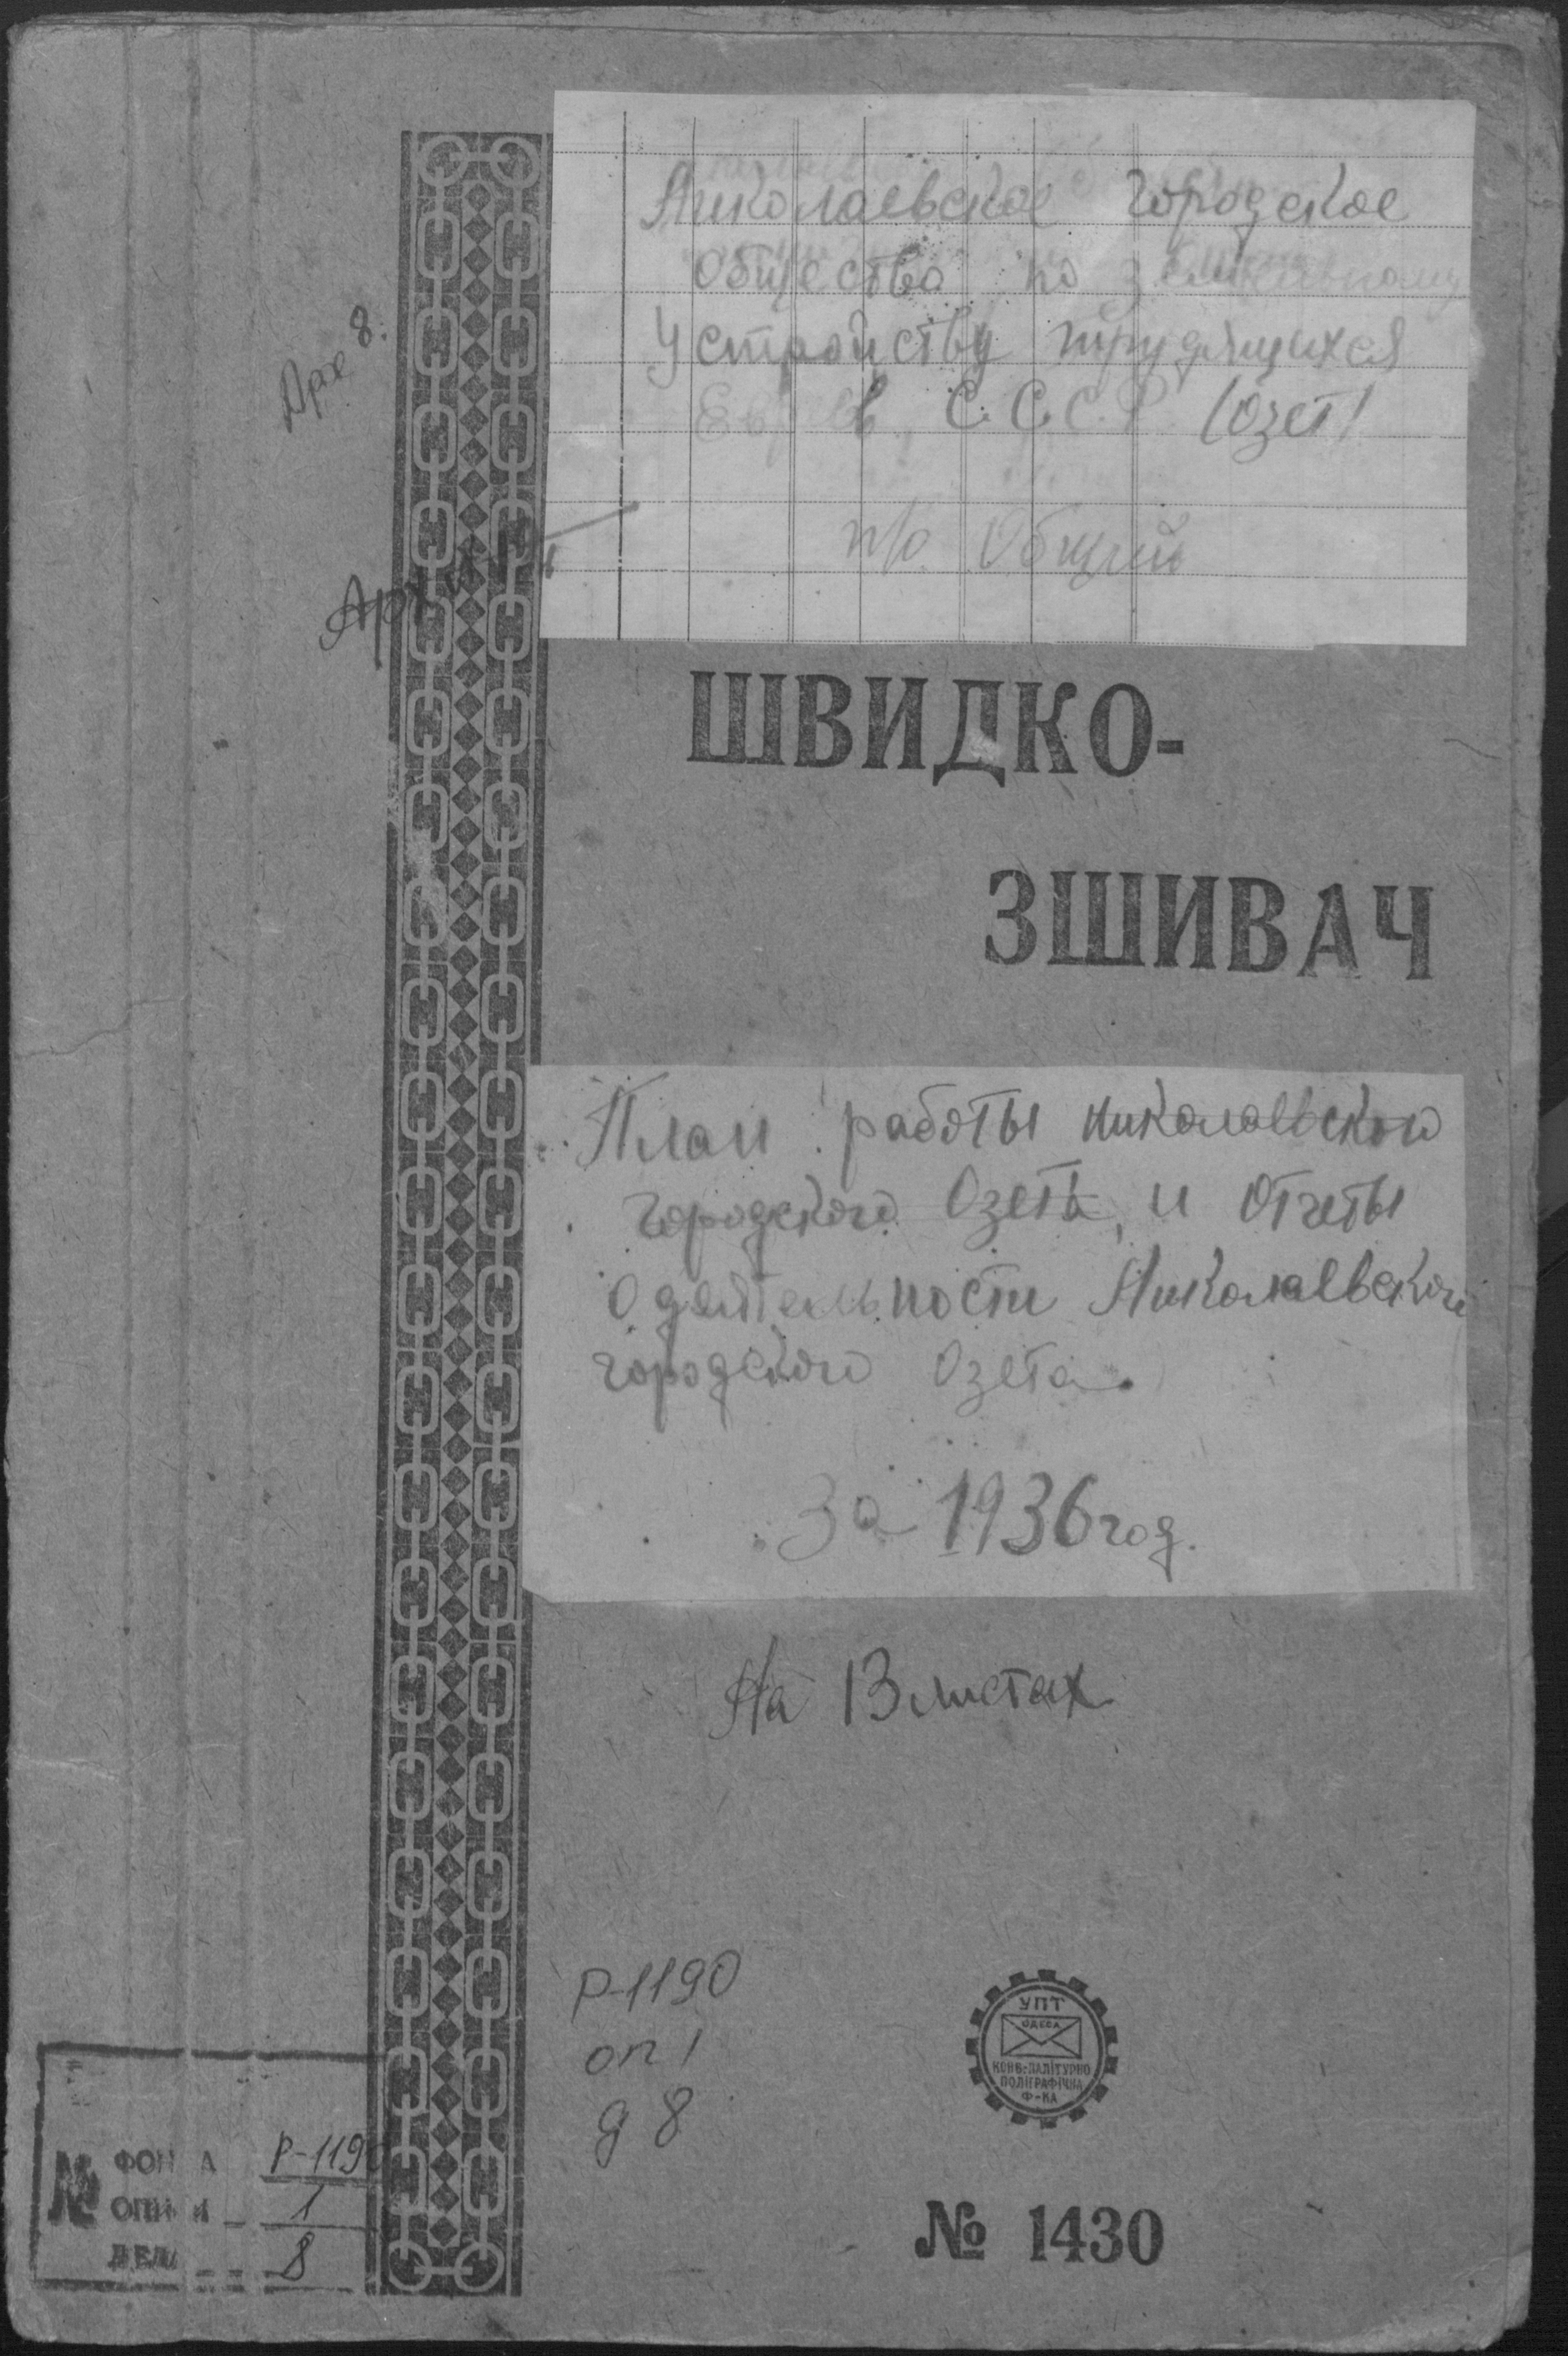 Николаевское городское
общество по земельному
устройству трудящихся
Евреев, С.С.С.Р. (Озет)
п/о Общий
Арх 8.
ШВИДКО-
ЗШИВАЧ
План работы николаевского
городского Озета, и отчеты
о деятельности Николаевского
городского Озета.
За 1936 год.
На 13 листах
Р-1190
оп 1
д 8
УПТ
ОДЕСА
КОНВ-ПАЛІТУРНО
ПОЛІГРАФІЧНА
Ф-КА
№ ФОНДА Р-1190
ОПИСИ 1
ДЕЛА 8
№ 1430